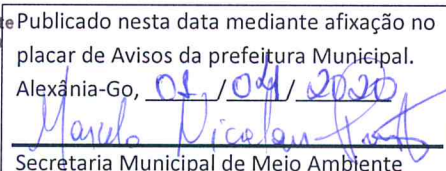 te Publicado nesta data mediante afixação no
placar de Avisos da prefeitura Municipal.
Alexânia-Go, 01 / 04 / 2020
Marcelo Nicolau
Secretaria Municipal de Meio Ambiente